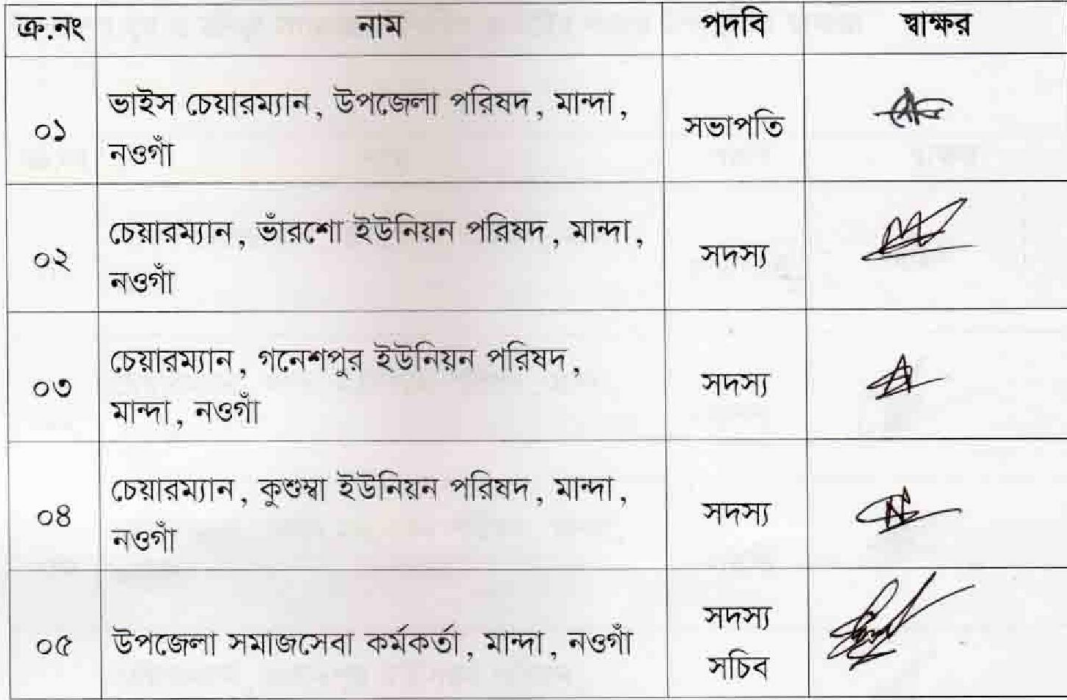 ক্র.নং নাম পদবি স্বাক্ষর
০১ ভাইস চেয়ারম্যান, উপজেলা পরিষদ, মান্দা, নওগাঁ সভাপতি
০২ চেয়ারম্যান, ভাঁরশো ইউনিয়ন পরিষদ, মান্দা, নওগাঁ সদস্য
০৩ চেয়ারম্যান, গনেশপুর ইউনিয়ন পরিষদ, মান্দা, নওগাঁ সদস্য
০৪ চেয়ারম্যান, কুশুম্বা ইউনিয়ন পরিষদ, মান্দা, নওগাঁ সদস্য
০৫ উপজেলা সমাজসেবা কর্মকর্তা, মান্দা, নওগাঁ সদস্য সচিব